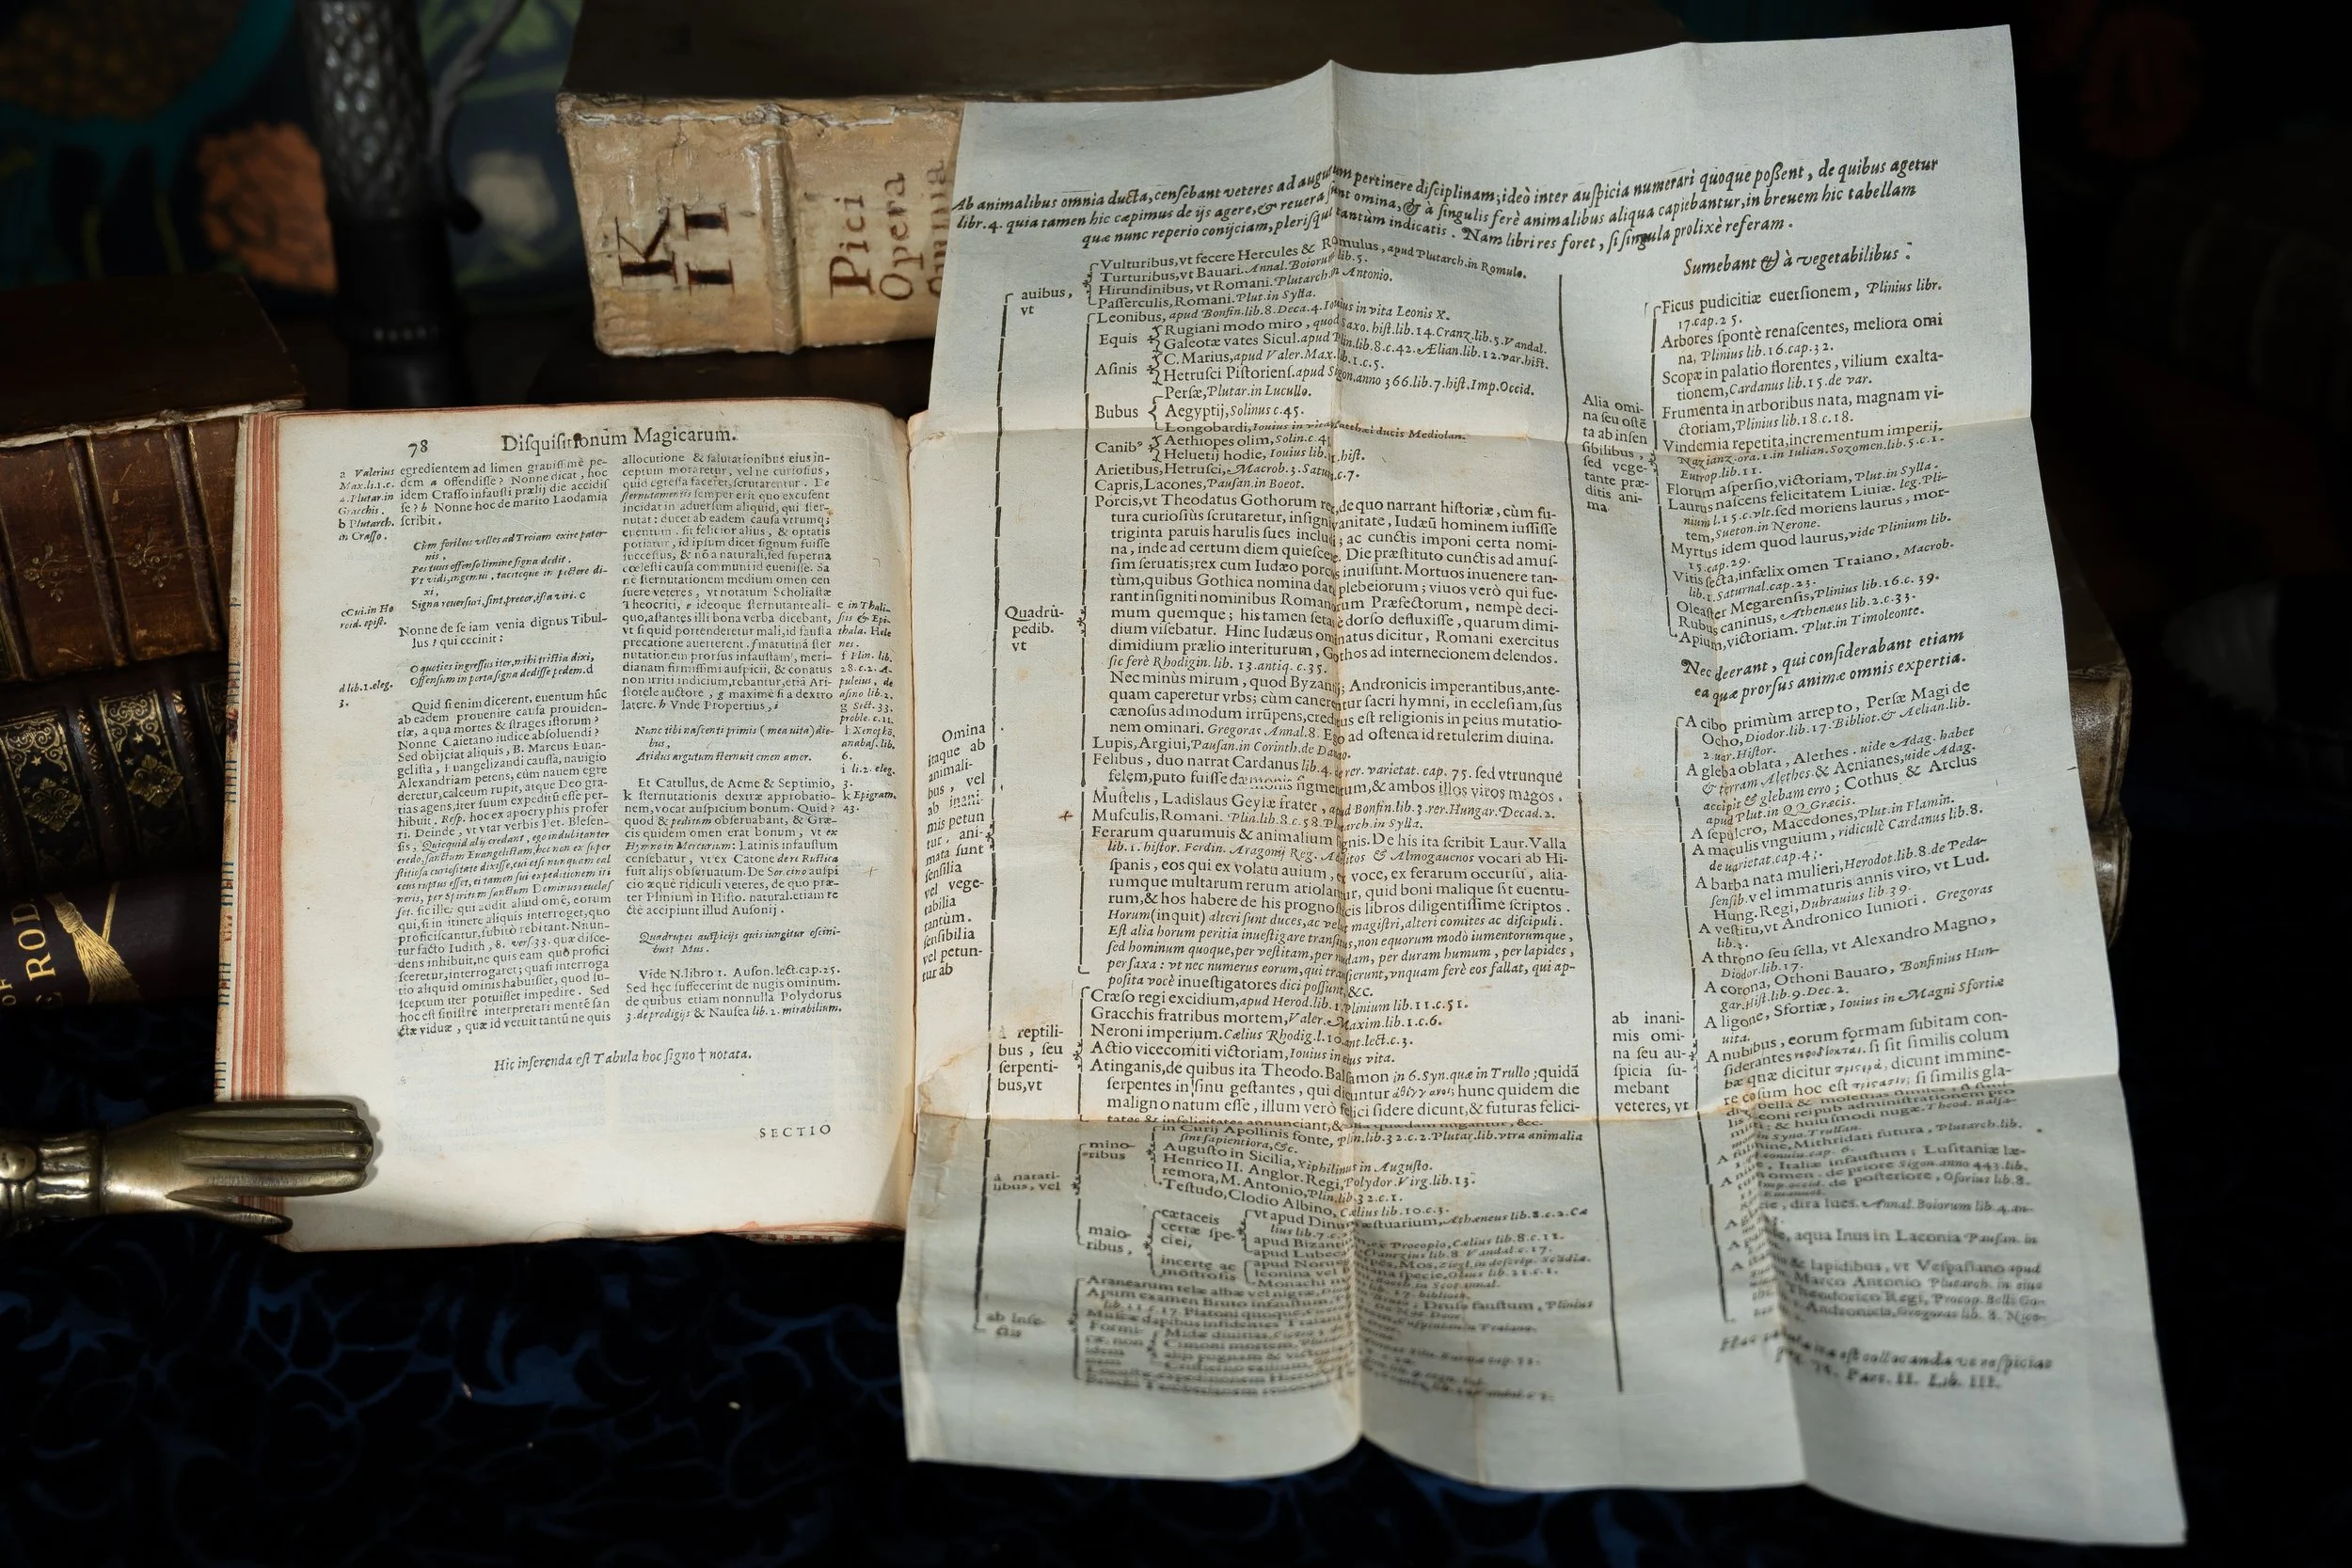 K
II
Pici
Opera
Omnia
78
Disquisitionum Magicarum.
a Valerius
Max.li.1.c.
4. Plutar. in
Gracchis.
b Plutarch.
in Crasso.
egredientem ad limen grauissimè pe-
dem a offendisse? Nonne dicat, hoc
idem Crasso infausti prælij die accidis
se? b Nonne hoc de marito Laodamia
scribit.
Cùm foribus velles ad Troiam exire pater-
nis,
Pes tuus offenso limine signa dedit.
Vt vidi, ingemui, tacitoque in pectore di-
xi,
Signa reuersuri, sint, precor, ista viri. c
c Oui. in He
roid. epist.
Nonne de se iam venia dignus Tibul-
lus? qui cecinit:
O quoties ingressus iter, mihi tristia dixi,
Offensum in porta signa dedisse pedem. d
d lib.1.eleg.
3.
Quid si enim dicerent, euentum hûc
ab eadem prouenire causa prouiden-
tiæ, a qua mortes & strages istorum?
Nonne Caietano iudice absoluendi?
Sed obijciat aliquis, B. Marcus Euan-
gelista, Euangelizandi caussa, nauigio
Alexandriam petens, cùm nauem egre
deretur, calceum rupit, atque Deo gra-
tias agens, iter suum expeditū esse per-
hibuit. Resp. hoc ex apocryphis profer
ri. Deinde, vt vtar verbis Pet. Blesen-
sis, Quicquid alij credant, ego indubitanter
credo, sanctum Euangelistam, hoc non ex super
stitiosa curiositate dixisse, cui etsi nunquam cal
ceus ruptus esset, ei tamen sui expeditionem iti
neris, per Spiritum sanctum Dominus reuelas
set. sic ille; qui addit aliud omē, eorum
qui, si in itinere aliquis interroget, quo
proficiscantur, subitò rebitant. Nnun-
tur facto Iudith, 8. vers.33. quæ disce-
dens inhibuit, ne quis eam quò profici
sceretur, interrogaret; quasi interroga
tio aliquid ominis habuisset, quod su-
sceptum iter potuisset impedire. Sed
hoc est sinistrè interpretari mentē san
ctæ viduæ, quæ id vetuit tantū ne quis
allocutione & salutationibus eius in-
ceptum moraretur, vel ne curiosius,
quid egressa faceret, scrutarentur. De
sternutamentis semper erit quo excusent
incidat in aduersum aliquid, qui ster-
nutat: ducet ab eadem causa vtrumq;
euentum. sit felicior alius, & optatis
potiatur, id ipsum dicet signum fuisse
successus, & nō a naturali, sed superna
cœlesti causa communi id euenisse. Sa
nè sternutationem medium omen cen
suere veteres, vt notatum Scholiastæ
Theocriti, e ideoque sternutante ali-
quo, astantes illi bona verba dicebant,
vt si quid portenderetur mali, id fausta
precatione auerterent. f matutinā ster
nutationem prorsus infaustam, meri-
dianam firmissimi auspicij, & conatus
non irriti indicium, rebantur, etiā Ari-
stotele auctore, g maximè si a dextro
latere. h Vnde Propertius, i
e in Thali-
siis & Epi-
thala. Hele
nes.
f Plin. lib.
28.c.2. A-
puleius, de
asino lib.2.
g Sect.33.
proble.c.11.
Xenophō.
anabas. lib.
6.
i li.2. eleg.
3.
k Epigram.
43.
Nunc tibi nascenti primis (mea vita) die-
bus,
Aridus argutum sternuit omen amor.
Et Catullus, de Acme & Septimio,
k sternutationis dextræ approbatio-
nem, vocat auspicium bonum. Quid?
quod & peditum obseruabant, & Græ-
cis quidem omen erat bonum, vt ex
Hymno in Mercurium: Latinis infaustum
censebatur, vt ex Catone de re Rustica
fuit alijs obseruatum. De Soricino auspi
cio æquè ridiculi veteres, de quo præ-
ter Plinium in Histo. natural. etiam re
ctè accipiunt illud Ausonij.
Quadrupes auspicijs quis iungitur oscini-
bus? Mus.
Vide N. libro 1. Auson. lect.cap.25.
Sed hęc suffecerint de nugis ominum.
de quibus etiam nonnulla Polydorus
3. de prodigijs & Nausea lib.2. mirabilium.
Hic inserenda est Tabula hoc signo † notata.
SECTIO
OF
E ROD
Ab animalibus omnia ducta, censebant veteres ad augurum pertinere disciplinam; ideò inter auspicia numerari quoque possent, de quibus agetur
libr.4. quia tamen hic cæpimus de ijs agere, & reuera sunt omina, & à singulis ferè animalibus aliqua capiebantur, in breuem hic tabellam
quæ nunc reperio conijciam, plerisque tantùm indicatis. Nam libri res foret, si singula prolixè referam.
Omina
itaque ab
animali-
bus, vel
ab inani-
mis petun
tur. ani-
mata sunt
sensilia
vel vege-
tabilia
tantùm.
sensibilia
vel petun-
tur ab
auibus,
vt
Vulturibus, vt fecere Hercules & Romulus, apud Plutarch. in Romulo.
Turturibus, vt Bauari. Annal. Boiorum lib.5.
Hirundinibus, vt Romani. Plutarch. in Antonio.
Passerculis, Romani. Plut. in Sylla.
Quadrù-
pedib.
vt
Leonibus, apud Bonfin. lib.8. Deca.4. Iouius in vita Leonis X.
Equis
Rugiani modo miro, quod Saxo. hist. lib.14. Cranz. lib.5. Vandal.
Galeotæ vates Sicul. apud Plin. lib.8.c.42. Ælian. lib.12. var. hist.
Asinis
C. Marius, apud Valer. Max. lib.1.c.5.
Hetrusci Pistoriens. apud Sigon. anno 366. lib.7. hist. Imp. Occid.
Bubus
Persæ, Plutar. in Lucullo.
Aegyptij, Solinus c.45.
Longobardi, Iouius in vita Matthæi ducis Mediolan.
Canibᵒ
Aethiopes olim, Solin. c.4
Heluetij hodie, Iouius lib. hist.
Arietibus, Hetrusci, Macrob. 3. Satur. c.7.
Capris, Lacones, Pausan. in Boeot.
Porcis, vt Theodatus Gothorum rex, de quo narrant historiæ, cùm fu-
tura curiosiùs scrutaretur, insigni vanitate, Iudæū hominem iussisse
triginta paruis harulis sues includi; ac cunctis imponi certa nomi-
na, inde ad certum diem quiescere. Die præstituto cunctis ad amus-
sim seruatis; rex cum Iudæo porcos inuisunt. Mortuos inuenere tan-
tùm, quibus Gothica nomina data plebeiorum; viuos verò qui fue-
rant insigniti nominibus Romanorum Præfectorum, nempè deci-
mum quemque; his tamen setas è dorso defluxisse, quarum dimi-
dium visebatur. Hinc Iudæus ominatus dicitur, Romani exercitus
dimidium prælio interiturum, Gothos ad internecionem delendos.
sic ferè Rhodigin. lib. 13. antiq. c.35.
Nec minùs mirum, quod Byzantij; Andronicis imperantibus, ante-
quam caperetur vrbs; cùm canerentur sacri hymni, in ecclesiam, sus
cænosus admodum irrūpens, creditus est religionis in peius mutatio-
nem ominari. Gregoras Annal.8. Ego ad ostenta id retulerim diuina.
Lupis, Argiui, Pausan. in Corinth. de Danao.
Felibus, duo narrat Cardanus lib.4. de rer. varietat. cap. 75. sed vtrunque
felem, puto fuisse dæmonis figmentum, & ambos illos viros magos.
Mustelis, Ladislaus Geylæ frater, apud Bonfin. lib.3. rer. Hungar. Decad.2.
Musculis, Romani. Plin. lib.8.c.58. Plutarch. in Sylla.
Ferarum quarumuis & animalium signis. De his ita scribit Laur. Valla
lib.1. histor. Ferdin. Aragonij Reg. Aelitos & Almogauenos vocari ab Hi-
spanis, eos qui ex volatu auium, ex voce, ex ferarum occursu, alia-
rumque multarum rerum ariolantur, quid boni malique sit euentu-
rum, & hos habere de his prognosticis libros diligentissime scriptos.
Horum (inquit) alteri sunt duces, ac velut magistri, alteri comites ac discipuli.
Est alia horum peritia inuestigare transitus, non equorum modò iumentorumque,
sed hominum quoque, per vestitam, per nudam, per durum humum, per lapides,
per saxa: vt nec numerus eorum, qui transierunt, vnquam ferè eos fallat, qui ap-
posita vocē inuestigatores dici possunt, &c.
à reptili-
bus, seu
serpenti-
bus, vt
Crœso regi excidium, apud Herod. lib.1. Plinium lib.11.c.51.
Gracchis fratribus mortem, Valer. Maxim. lib.1.c.6.
Neroni imperium. Cælius Rhodig. l.10. ant. lect. c.3.
Actio vicecomiti victoriam, Iouius in eius vita.
Atinganis, de quibus ita Theodo. Balsamon in 6. Syn. quæ in Trullo; quidā
serpentes in sinu gestantes, qui dicuntur ἀθίγγανοι; hunc quidem die
maligno natum esse, illum verò felici sidere dicunt, & futuras felici-
tates & infelicitates annunciant, & alia quædam nugantur, &c.
à natati-
libus, vel
mino-
ribus
in Curij Apollinis fonte, Plin. lib.32.c.2. Plutar. lib. vtra animalia
sint sapientiora, &c.
Augusto in Sicilia, Xiphilinus in Augusto.
Henrico II. Anglor. Regi, Polydor. Virg. lib.13.
remora, M. Antonio, Plin. lib.32.c.1.
Testudo, Clodio Albino, Cælius lib.10.c.3.
maio-
ribus,
cætaceis
certæ spe-
ciei,
incerte ac
mōstrosis
ab Inse-
ctis
Aranearum telæ albæ vel nigræ,
Apum examen Bruto infaustum, Druso faustum, Plinius
lib.11.c.17. Platoni quoque,
Muscæ dapibus insidentes Traiani
Midæ diuitias,
Cimoni mortem,
Alia omi-
na seu ostē
ta ab insen
sibilibus,
sed vege-
tante præ-
ditis ani-
ma.
Sumebant & à vegetabilibus:
Ficus pudicitiæ euersionem, Plinius libr.
17.cap.25.
Arbores spontè renascentes, meliora omi
na, Plinius lib.16.cap.32.
Scopæ in palatio florentes, vilium exalta-
tionem, Cardanus lib.15. de var.
Frumenta in arboribus nata, magnam vi-
ctoriam, Plinius lib.18.c.18.
Vindemia repetita, incrementum imperij.
Nazianz. ora.1. in Iulian. Sozomen. lib.5.c.1.
Eutrop. lib.11.
Florum aspersio, victoriam, Plut. in Sylla.
Laurus nascens felicitatem Liuiæ. leg. Pli-
nium l.15.c.vlt. sed moriens laurus, mor-
tem, Sueton. in Nerone.
Myrtus idem quod laurus, vide Plinium lib.
15.cap.29.
Vitis secta, infælix omen Traiano, Macrob.
lib.1. Saturnal. cap.23.
Oleaster Megarensis, Plinius lib.16.c.39.
Rubus caninus, Athenæus lib.2.c.33.
Apium, victoriam. Plut. in Timoleonte.
Nec deerant, qui considerabant etiam
ea quæ prorsus animæ omnis expertia.
ab inani-
mis omi-
na seu au-
spicia su-
mebant
veteres, vt
A cibo primùm arrepto, Persæ Magi de
Ocho, Diodor. lib.17. Bibliot. & Aelian. lib.
2. var. Histor.
A gleba oblata, Alethes. uide Adag. habet
& terram Alethes. & Aenianes, uide Adag.
accipit & glebam erro; Cothus & Arclus
apud Plut. in QQ. Græcis.
A sepulcro, Macedones, Plut. in Flamin.
A maculis vnguium, ridiculè Cardanus lib.8.
de uarietat. cap.43.
A barba nata mulieri, Herodot. lib.8. de Peda-
sensib. vel immaturis annis viro, vt Lud.
Hung. Regi, Dubrauius lib.39.
A vestitu, vt Andronico Iuniori. Gregoras
lib.
A throno seu sella, vt Alexandro Magno,
Diodor. lib.17.
A corona, Othoni Bauaro, Bonfinius Hun-
gar. Hist. lib.9. Dec.2.
A ligone, Sfortiæ, Iouius in Magni Sfortiæ
uita.
A nubibus, eorum formam subitam con-
siderantes
si sit similis colum
bæ quæ dicitur
dicunt immine-
re cosum hoc est
si similis gla-
& huiusmodi nugæ, Theod. Balsa-
mon in Syno. Trullan.
A fulmine, Mithridati futura, Plutarch. lib.
Italiæ infaustum; Lusitaniæ læ-
omen. de priore Sigon. anno 443. lib.
de posteriore, Osorius lib.8.
dira lues. Annal. Boiorum lib.4.
aqua Inus in Laconia Pausan. in
& lapidibus, vt Vespasiano apud
Marco Antonio Plutarch. in eius
Theodorico Regi, Procop. Bello Go-
Andronicis, Gregoras lib. 8.
est collocanda vt respicias
Part. II. Lib. III.